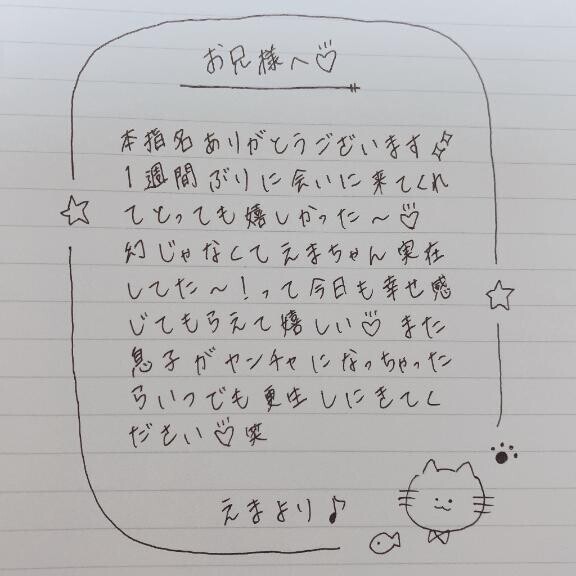 お兄様へ♡
本指名ありがとうございます
1週間ぶりに会いに来てくれ
てとっても嬉しかった～♡
幻じゃなくてえまちゃん実在
してた～！って今日も幸せ感
じてもらえて嬉しい♡また
息子がヤンチャになっちゃった
らいつでも更生しにきてく
ださい♡笑
えまより♪